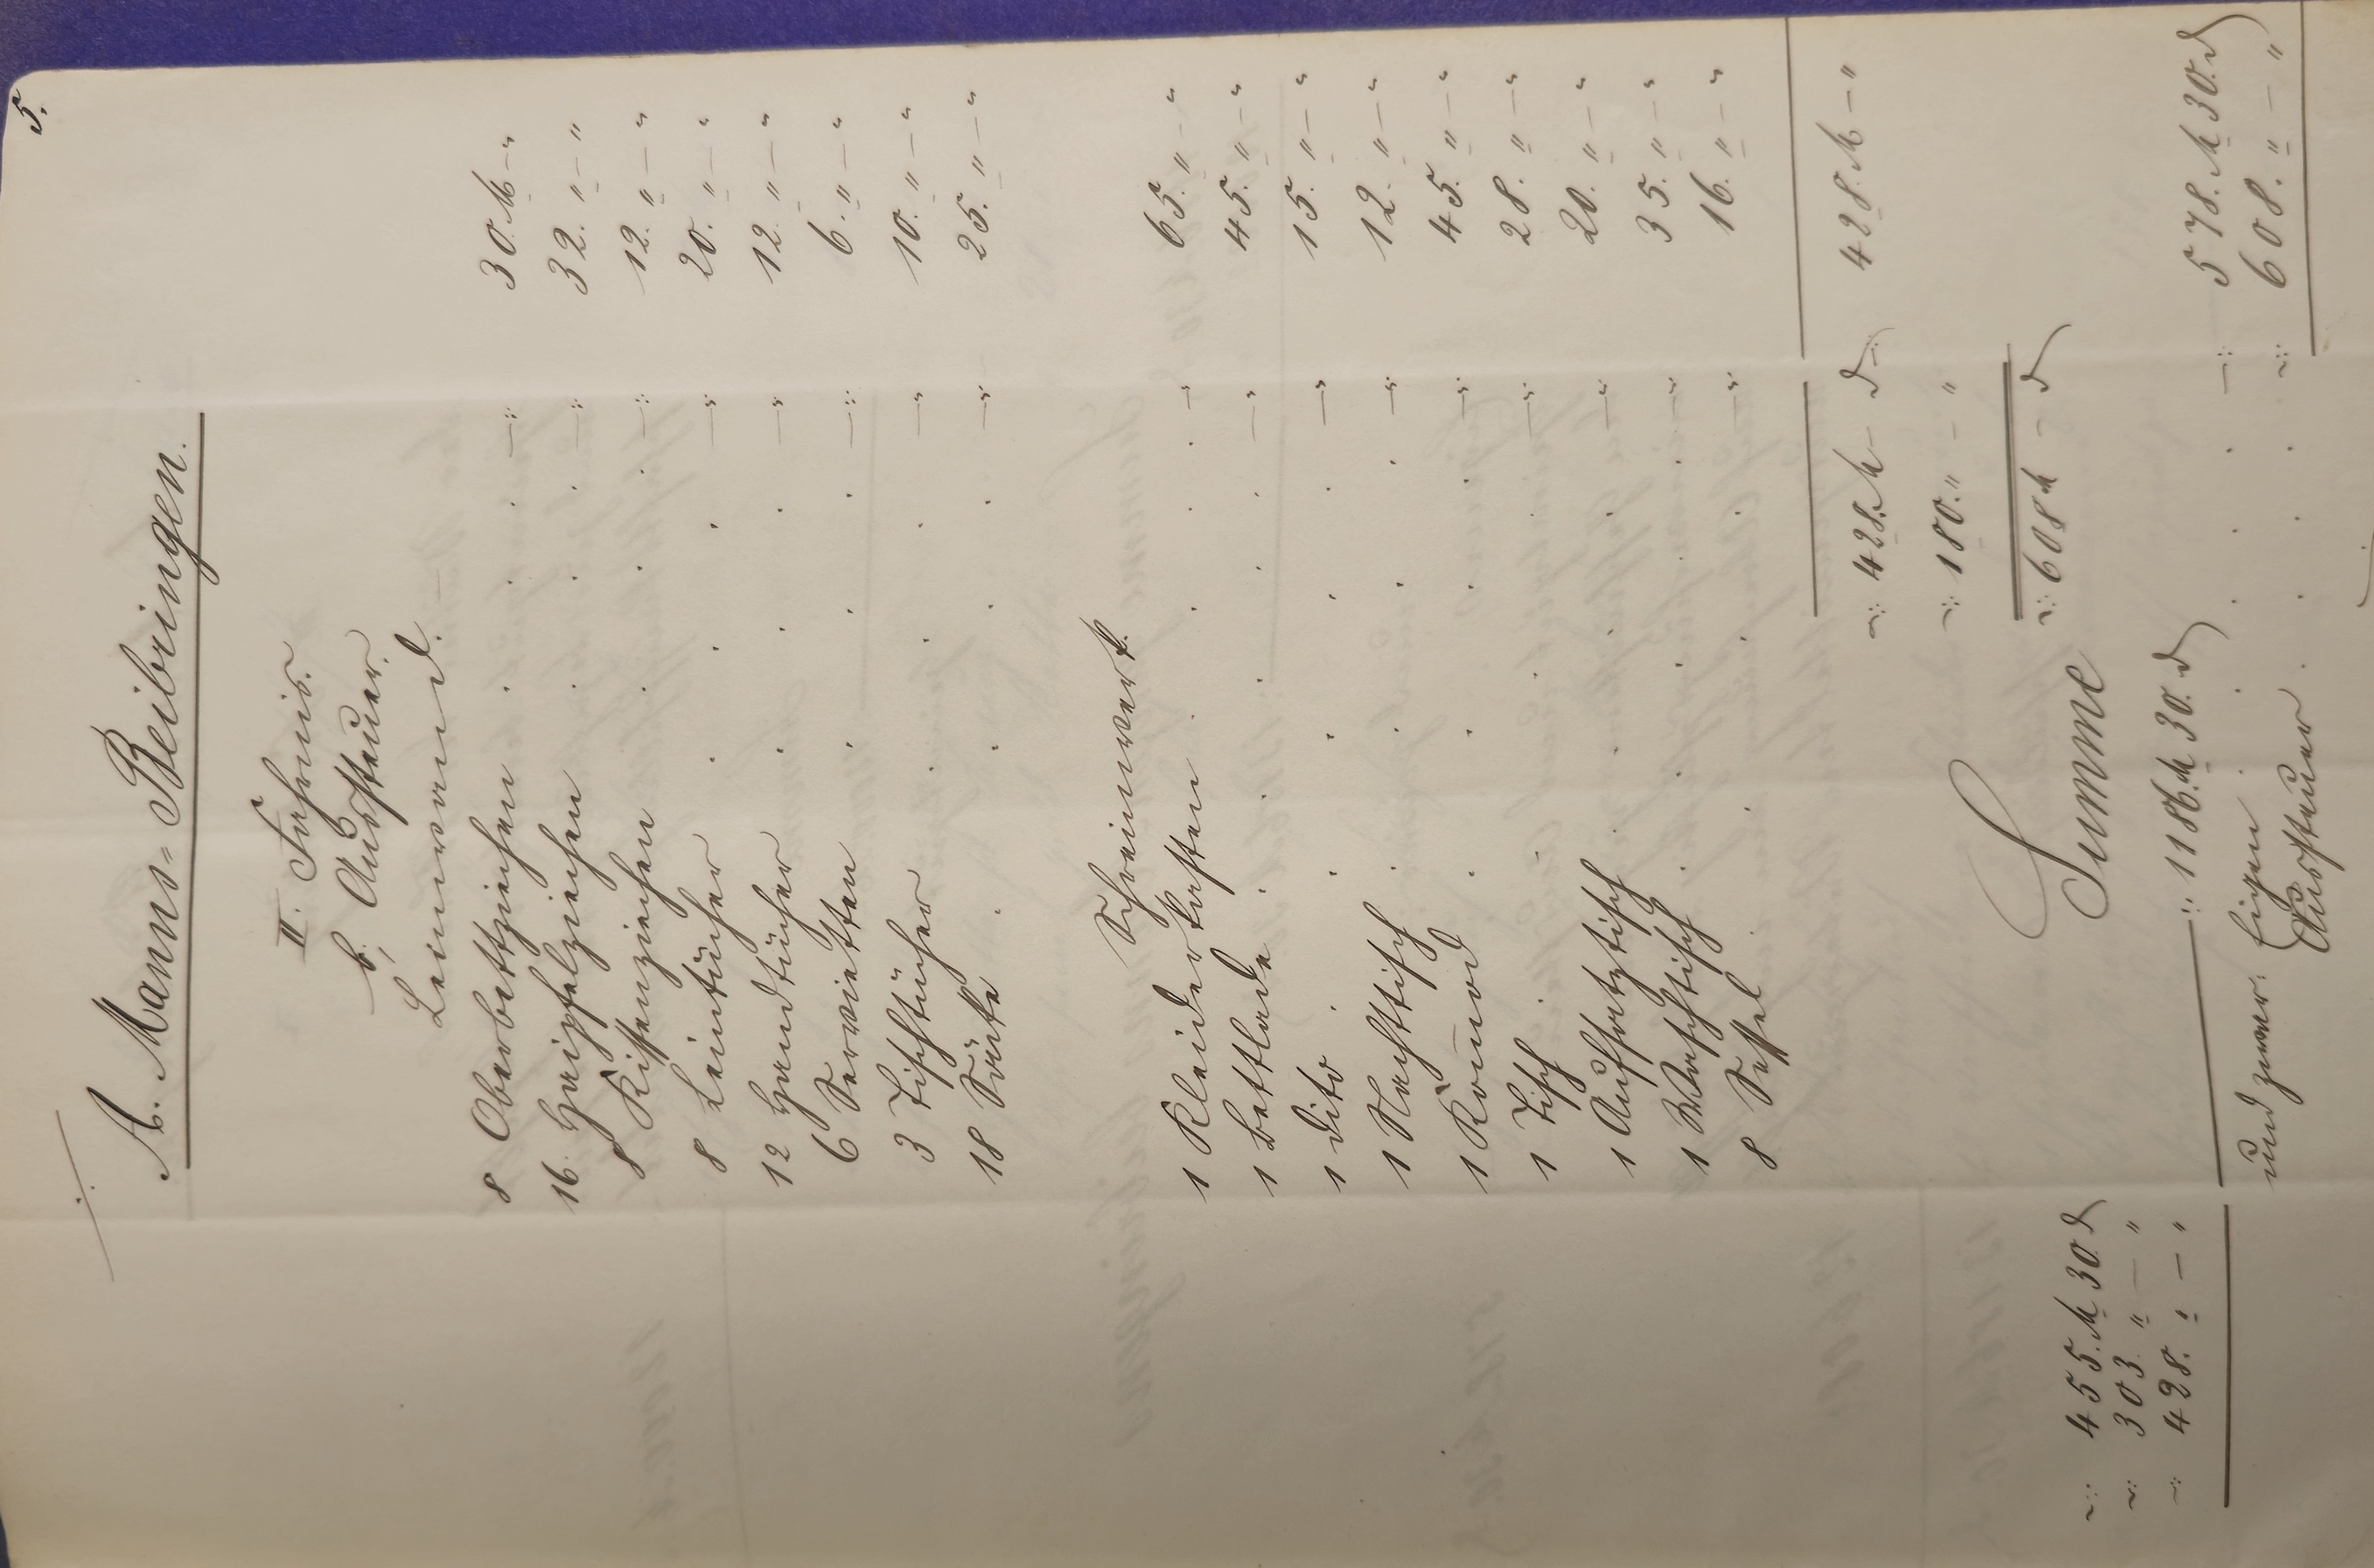 5.
A. Manns-Beibringen.
II. Fahrnis.
b, Aussteuer.
Leinwand.
8 Oberbettziechen . . . —: 30. M — "
16. Haipfelziechen . . —: 32. " — "
8 Kissenziechen . . . —: 12. " — "
8 Leintücher . . . —: 20. " — "
12 Handtücher . . . —: 12. " — "
6 Servietten . . . —: 6. " — "
3 Tischtücher . . . —: 10. " — "
18 Säcke . . . . —: 25. " — "
Schreinwerk.
1 Kleiderkasten . . . . — 65. " — "
1 Bettlade . . . . . . —: 45. " — "
1 dito . . . . . . —: 15. " — "
1 Nachttisch . . . . —: 12. " — "
1 Komod . . . . —: 45. " — "
1 Tisch . . . . —: 28. " — "
1 Aufsatztisch . . . . —: 20. " — "
1 Waschtisch . . . . . —: 35. " — "
8 Sessel . . . . —: 16. " — "
—: 428. M — d —: 428. M — "
—: 180. " — "
—: 608 M — d
Summe
—: 455. M 30 d
—: 303. " — "
—: 428. " — "
—: 1186. M 30. d
und zwar: Eigen . . . . . —: 578. M 30. d
Aussteuer . . . . —: 608. " — "